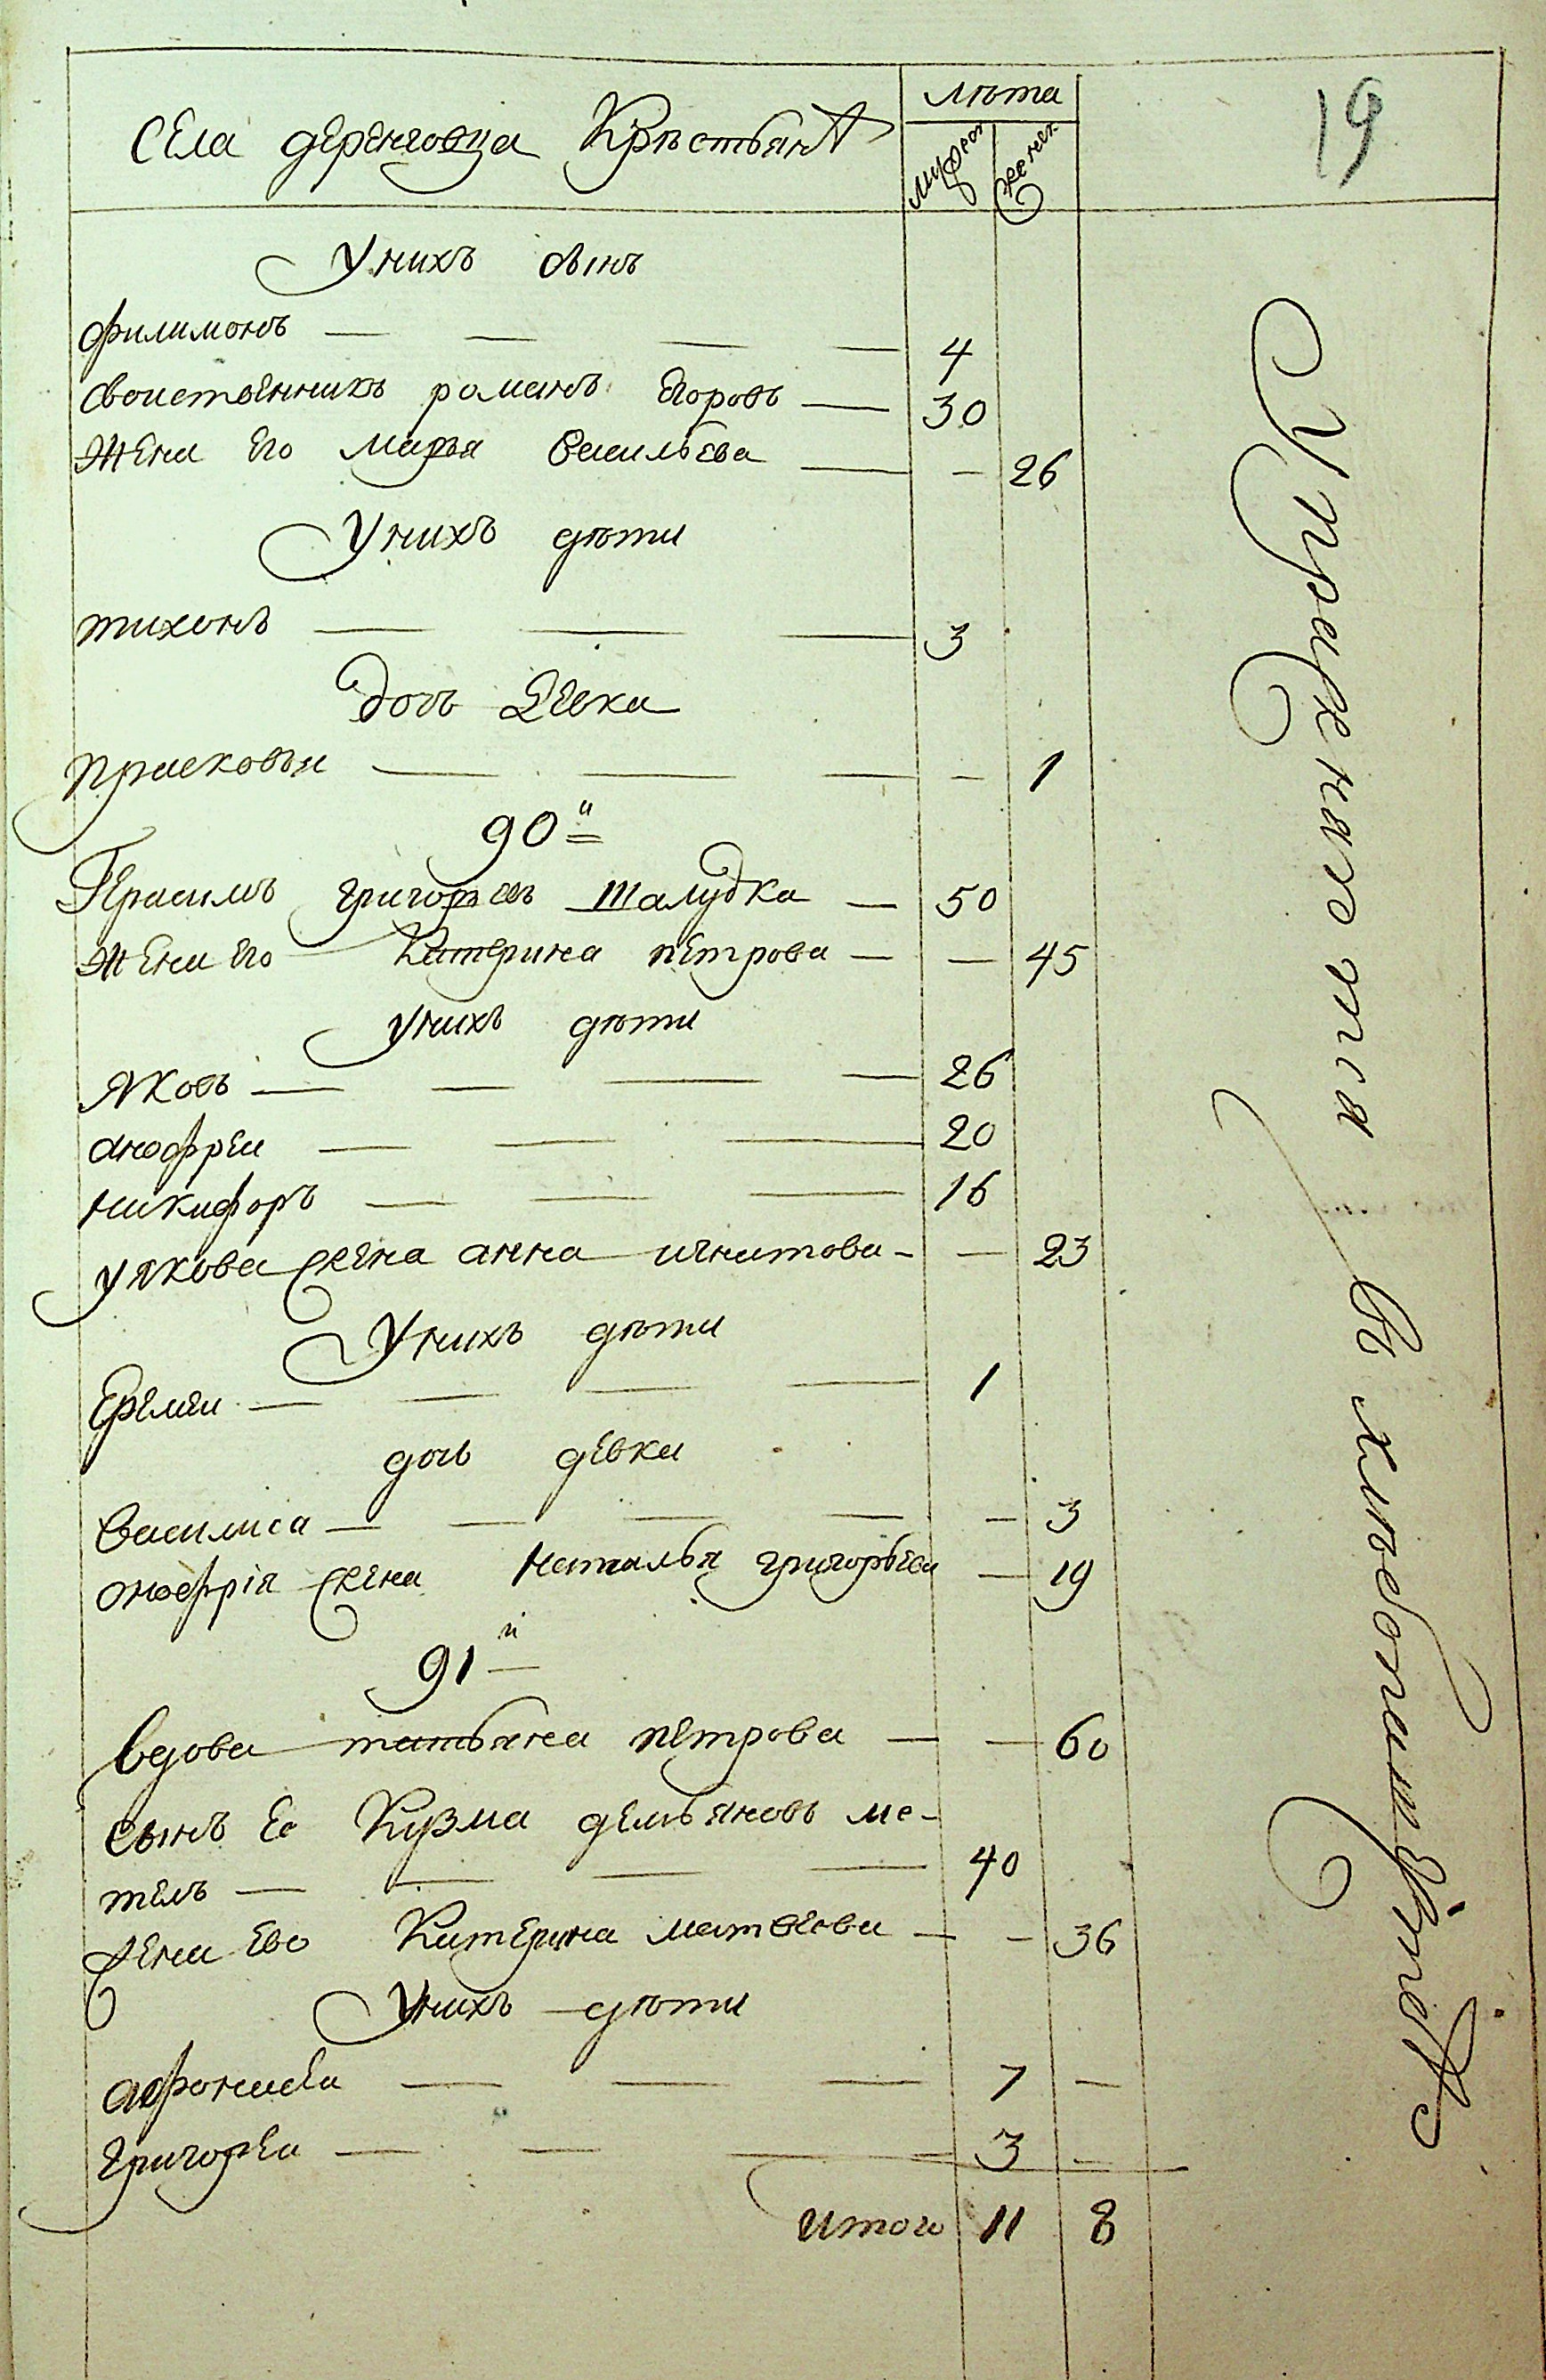 лѣта
Села деренговца Крѣстьянъ
мужеск
женск
19
У нихъ сынъ
филимонъ — — — — 4
свойственникъ романъ Егоровъ — 30
жена Его марья васильева — — 26
У нихъ дѣти
тихонъ — — — 3
дочь девка
прасковья — — — — 1
90й
Герасимъ григорьевъ шалудка — 50
жена Его Катерина петрова — — 45
У нихъ дѣти
яковъ — — — — 26
анофреи — — — 20
никифоръ — — — 16
у якова жена анна игнатова - — 23
У нихъ дѣти
Еремеи — — — — 1
дочь девка
василиса — — — — — 3
онофрія жена наталья григорьева — 19
91й
вдова татьяна петрова — — 60
сынъ Ее Кузма демьяновъ ме-
тель — — — — 40
жена Ево Катерина матвеева — — 36
У нихъ дѣти
афонасеи — — — 7 —
григореи — — — 3 —
итого 11 8
Упражняются
в хлебопашествѣ